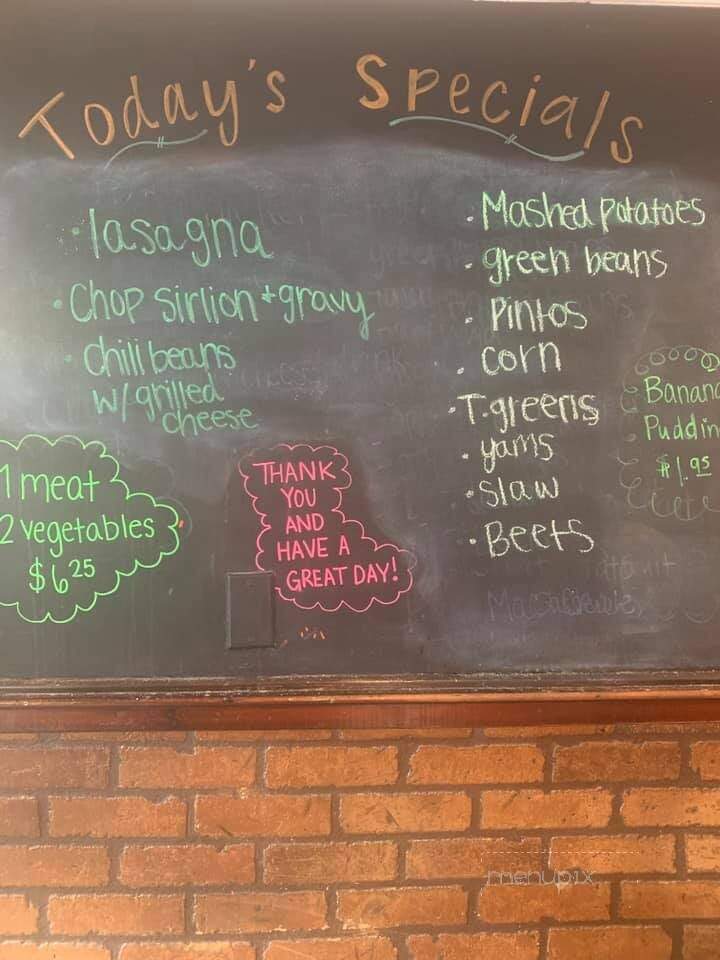 Today's Specials
· lasagna
· Chop sirlion + gravy
· Chili beans
w/ grilled
cheese
1 meat
2 vegetables
$6 25
THANK
YOU
AND
HAVE A
GREAT DAY!
· Mashed potatoes
· green beans
· Pintos
· corn
· T.greens
· yams
· slaw
· Beets
Banana
Puddin
$1.95
menupix